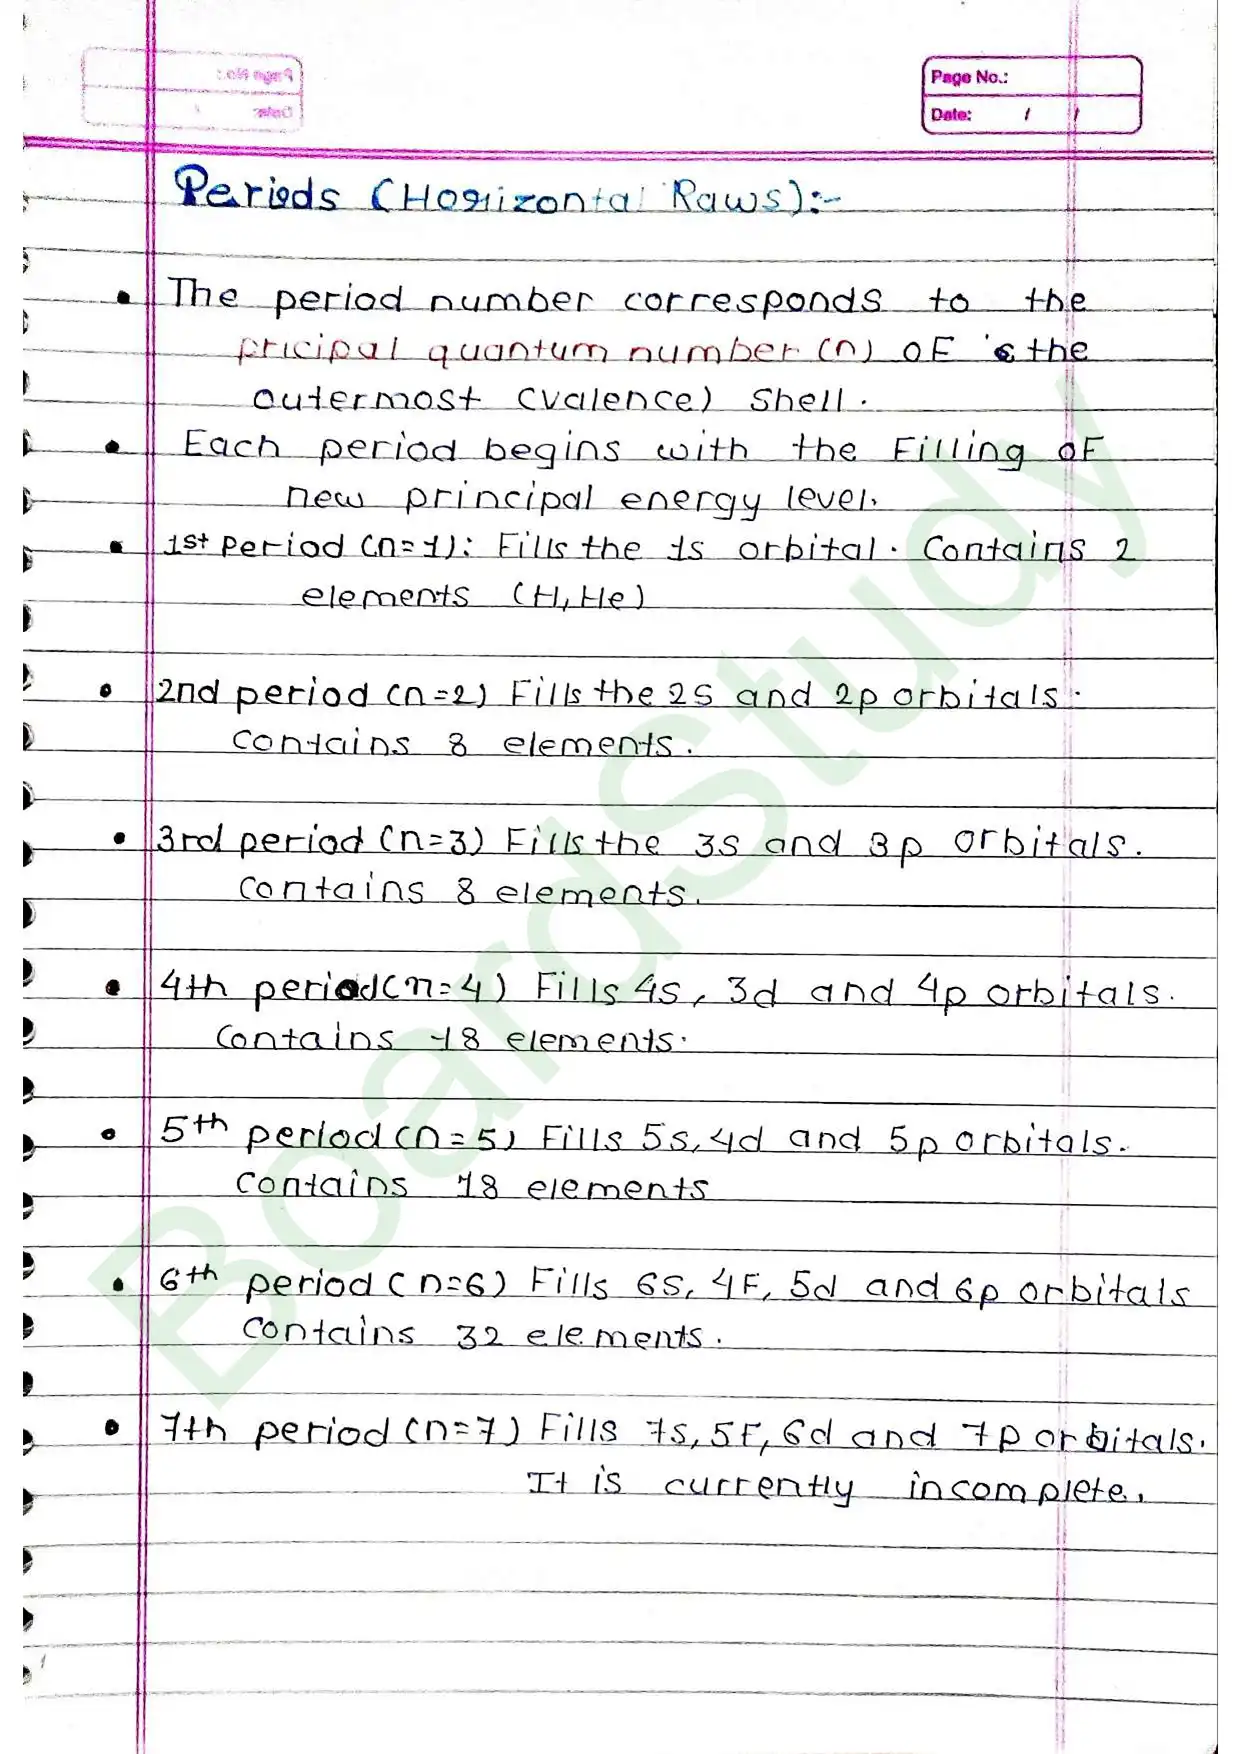 Page No.:
Date: / /
Periods (Horizontal Raws):-
• The period number corresponds to the
pricipal quantum number (n) of the
outermost (valence) shell.
• Each period begins with the Filling of
new principal energy level.
• 1st period (n=1): Fills the 1s orbital. Contains 2
elements (H, He)
• 2nd period (n=2) Fills the 2s and 2p orbitals.
Contains 8 elements.
• 3rd period (n=3) Fills the 3s and 3p orbitals.
Contains 8 elements.
• 4th period (n=4) Fills 4s, 3d and 4p orbitals.
Contains 18 elements.
• 5th period (n=5) Fills 5s, 4d and 5p orbitals.
Contains 18 elements
• 6th period (n=6) Fills 6s, 4F, 5d and 6p orbitals
Contains 32 elements.
• 7th period (n=7) Fills 7s, 5F, 6d and 7p orbitals.
It is currently incomplete.
BoardStudy